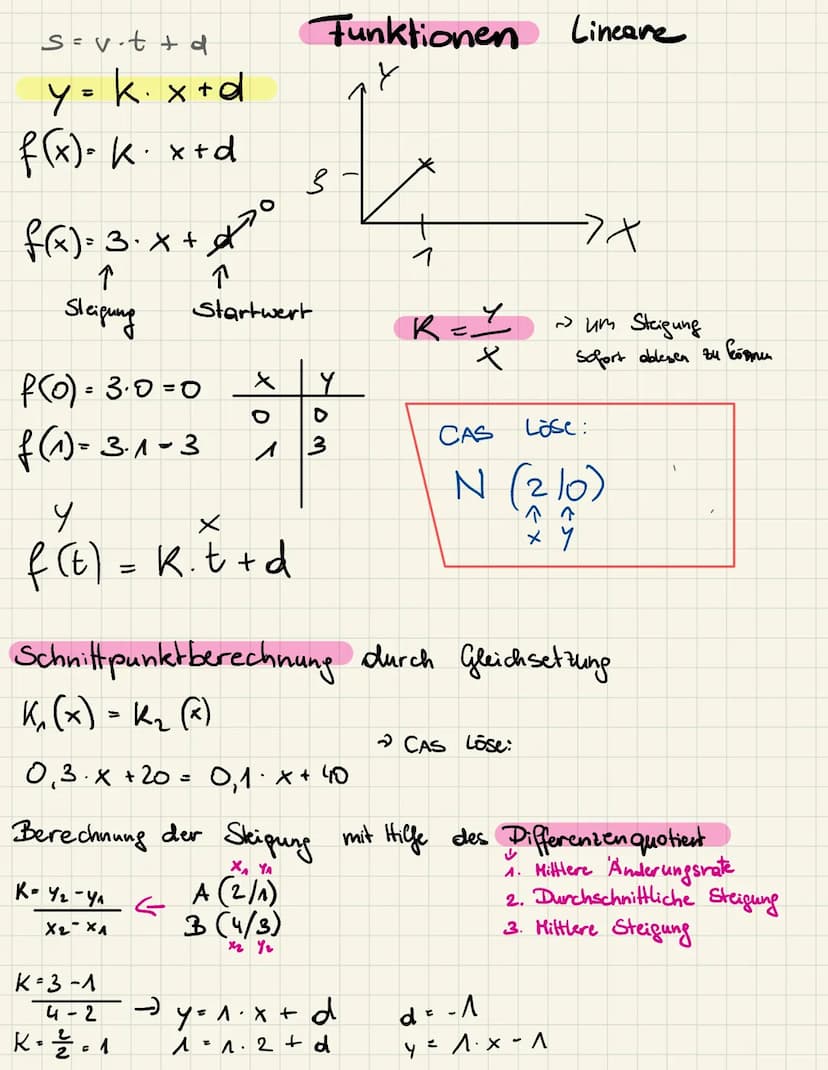 Funktionen Lineare
s = v · t + d
y = k · x + d
f(x) = k · x + d
f(x) = 3 · x + d 0
↑ ↑
Steigung Startwert
Y
3
1
X
K = Y/X
~> um Steigung
sofort ablesen zu können
f(0) = 3·0 = 0
f(1) = 3·1 - 3
x | y
0 | 0
1 | 3
CAS Löse:
N (2/0)
↑ ↑
x y
y x
f(t) = K · t + d
Schnittpunktberechnung durch Gleichsetzung
K₁(x) = K₂(x)
→ CAS Löse:
0,3 · x + 20 = 0,1 · x + 40
Berechnung der Steigung mit Hilfe des Differenzenquotient
↓
1. Mittlere Änderungsrate
2. Durchschnittliche Steigung
3. Mittlere Steigung
x₁ y₁
K = y₂ - y₁ / x₂ - x₁ ← A (2/1)
B (4/3)
x₂ y₂
K = 3 - 1 / 4 - 2 → y = 1 · x + d
K = 2/2 = 1
1 = 1 · 2 + d
d = -1
y = 1 · x - 1